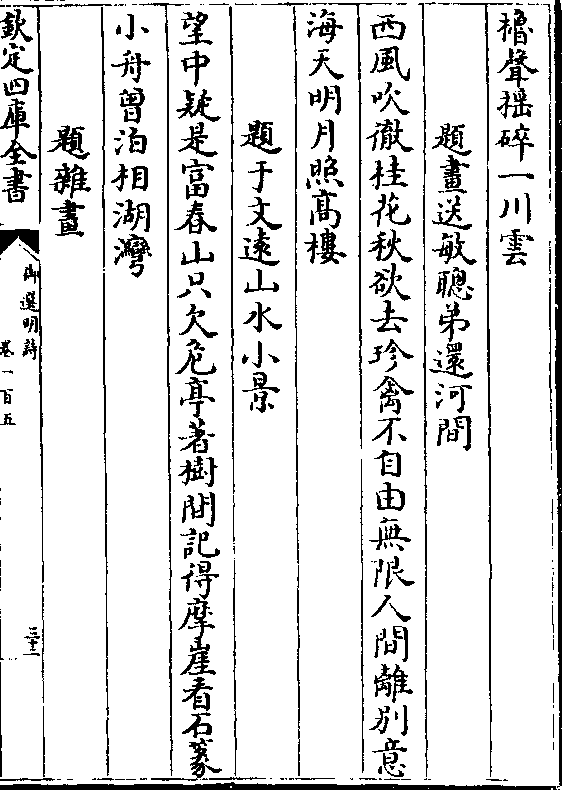 櫓聲揺碎一川雲
題畫送敏聰弟還河間
西風吹徹桂花秋欲去珍禽不自由無限人間離别意
海天明月照髙樓
題于文逺山水小景
望中疑是富春山只欠危亭著樹間記得摩崖看石篆
小舟曾泊相湖灣
題雜畫
欽定四庫全書
御選明詩
卷一百五
三十二